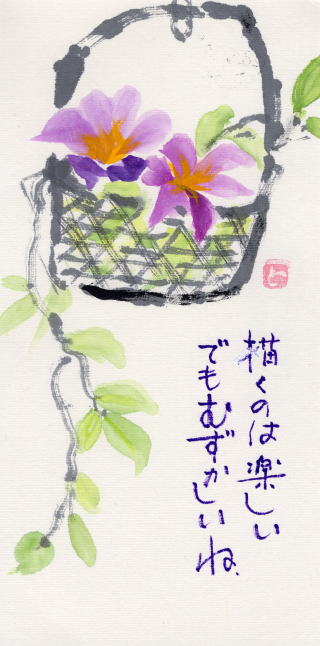 描くのは楽しい
でもむずかしいね、